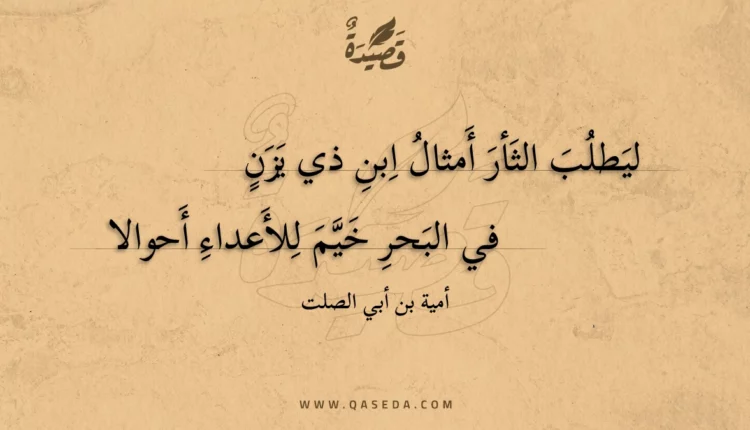 قَصِيدَةٌ
ليَطلُبَ الثَأرَ أَمثالُ اِبنِ ذي يَزَنٍ
في البَحرِ خَيَّمَ لِلأَعداءِ أَحوالا
أمية بن أبي الصلت
WWW.QASEDA.COM